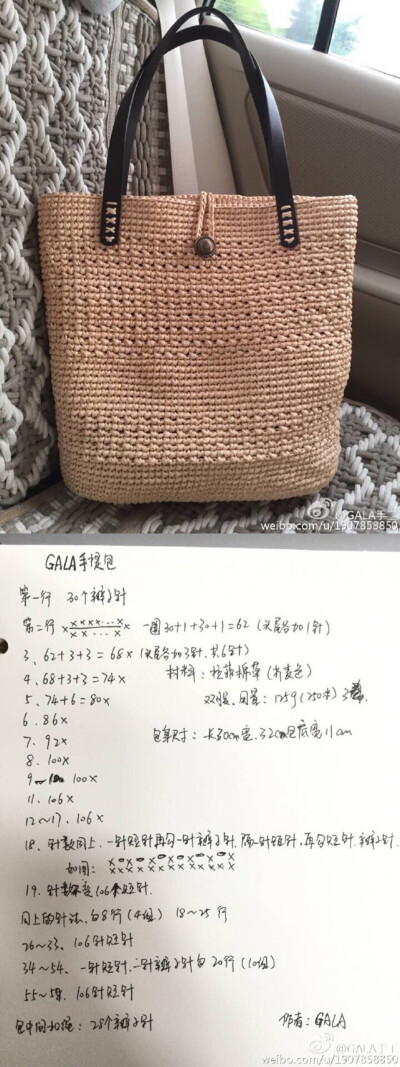 @GALA手工
weibo.com/u/1907858850
GALA手提包
第一行 30个辫子针
第二行 x xxxx...x x 一圈30+1+30+1=62 (头尾各加1针)
xx xx...x
3、62+3+3=68x (头尾各加3针.共6针)
4、68+3+3=74x 材料:拉菲棉草(折麦色)
5、74+6=80x 双股、用量:175g(250米)3
6、86x
7、92x 包身尺寸:长30cm宽.32cm包底宽11cm
8、100x
9~10 100x
11、106x
12~17、106x
18、针数同上、一针短针再勾一针辫子针.隔一针短针.再勾短针.辫子针.
如图:
19、针数不变106个短针.
同上的针法.勾8行(4组) 18~25行
26~33、106针短针
34~54、一针短针.一针辫子针勾20行(10组)
55~58、106针短针
包中间扣绳:28个辫子针 作者:GALA
@GALA手工
weibo.com/u/1907858850